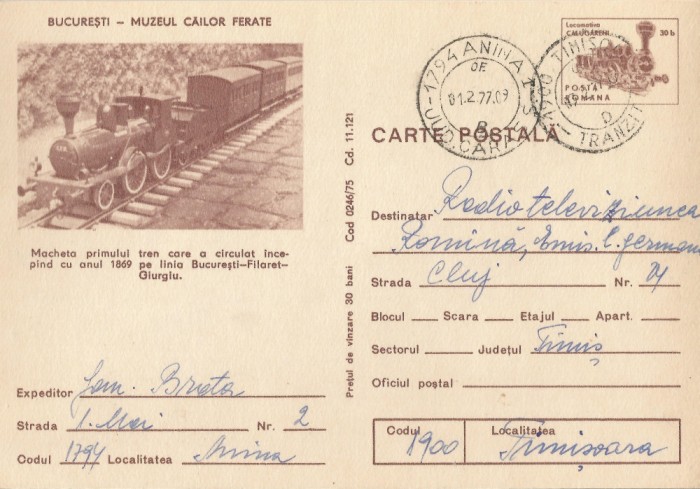 BUCUREȘTI – MUZEUL CĂILOR FERATE
Macheta primului tren care a circulat înce-
pînd cu anul 1869 pe linia București–Filaret–
Giurgiu.
Expeditor Fam. Brata
Strada 1. Mai Nr. 2
Codul 1794 Localitatea Anina
Prețul de vînzare 30 bani Cod 0246/75 Cd. 11.121
Locomotiva
CĂLUGĂRENI 30 b
POȘTA
ROMÂNA
1794 ANINA
DE
01.2.77.09
B
JUD. CARAȘ
1900 TIMIȘO
D
TRANZIT
CARTE POȘTALĂ
Destinatar Radioteleviziunea
Romînă, Emis. l. germană
Strada Cluj Nr.
Blocul Scara Etajul Apart.
Sectorul Județul Timiș
Oficiul poștal
Codul 1900 Localitatea Timișoara